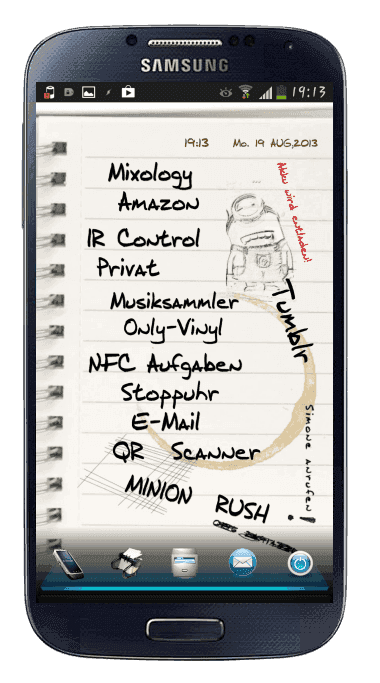 SAMSUNG
19:13
19:13 Mo. 19 AUG,2013
Mixology
Amazon
IR Control
Privat
Musiksammler
Only-Vinyl
NFC Aufgaben
Stoppuhr
E-Mail
QR Scanner
MINION RUSH
Akku wird entladen!
Tumblr
Simone anrufen!